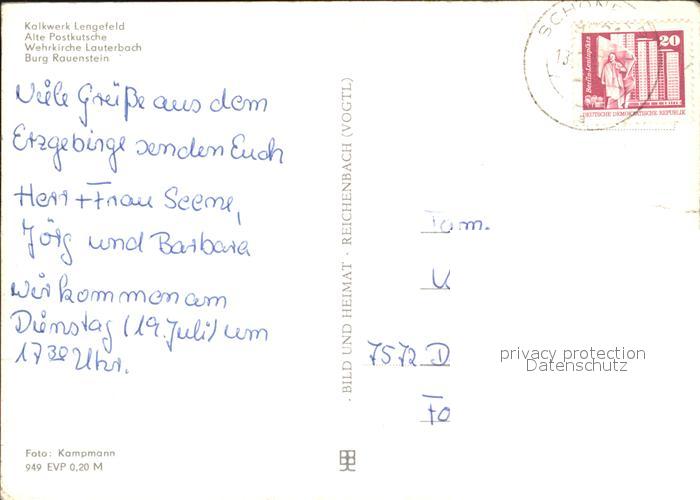 Kalkwerk Lengefeld
Alte Postkutsche
Wehrkirche Lauterbach
Burg Rauenstein
Viele Grüße aus dem
Erzgebirge senden Euch
Herr + Frau
Jörg und Barbara
wir kommen am
Dienstag (19. Juli) um
17³⁰ Uhr.
Foto: Kampmann
949 EVP 0,20 M
· BILD UND HEIMAT · REICHENBACH (VOGTL)
SCHÖNE
13.
Berlin-Leninplatz
20
DEUTSCHE DEMOKRATISCHE REPUBLIK
Fam.
7572 D
privacy protection
Datenschutz